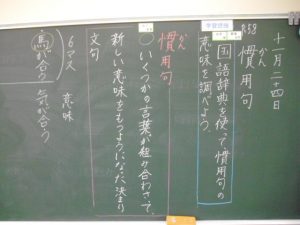 十一月二十四日
P.58
慣用句
かん
学習課題
国語辞典を使って慣用句の
意味を調べよう。
慣用句
かん
○いくつかの言葉が組み合わさって、
新しい意味をもつようになった決まり
文句
6マス
意味
馬が合う
気が合う